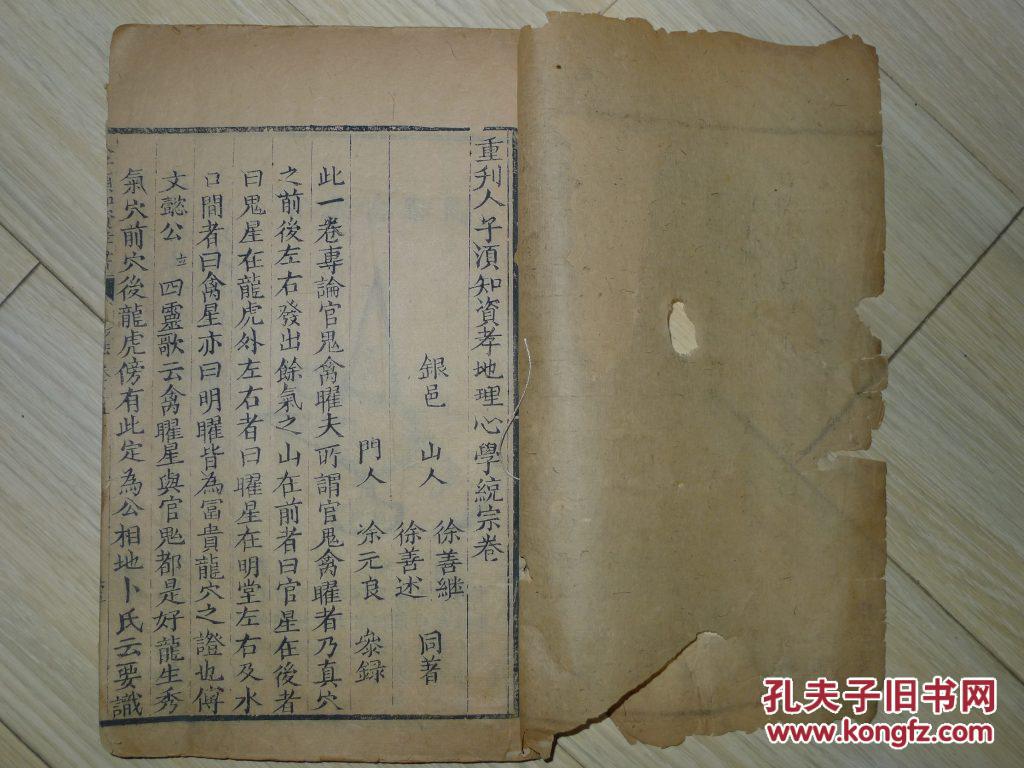 重刋人子湏知資孝地理心學統宗卷
銀邑 山人 徐善継
徐善述 同著
門人 涂元良 叅録
此一巻專論官鬼禽曜夫所謂官鬼禽曜者乃真穴
之前後左右發出餘氣之山在前者曰官星在後者
曰鬼星在龍虎外左右者曰曜星在明堂左右及水
口間者曰禽星亦曰明曜皆為冨貴龍穴之證也傅
文懿公 四靈歌云禽曜星與官鬼都是好龍生秀
氣穴前穴後龍虎傍有此定為公相地卜氏云要識
孔夫子旧书网
www.kongfz.com